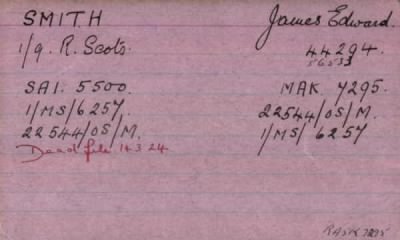 SMITH James Edward.
1/9. R. Scots. 44294.
56533
SAI. 5500. MAK. 7295.
1/MS/6257. 22544/OS/M.
22544/OS/M. 1/MS/6257
Dead file 14.3.24.
RASK 7295